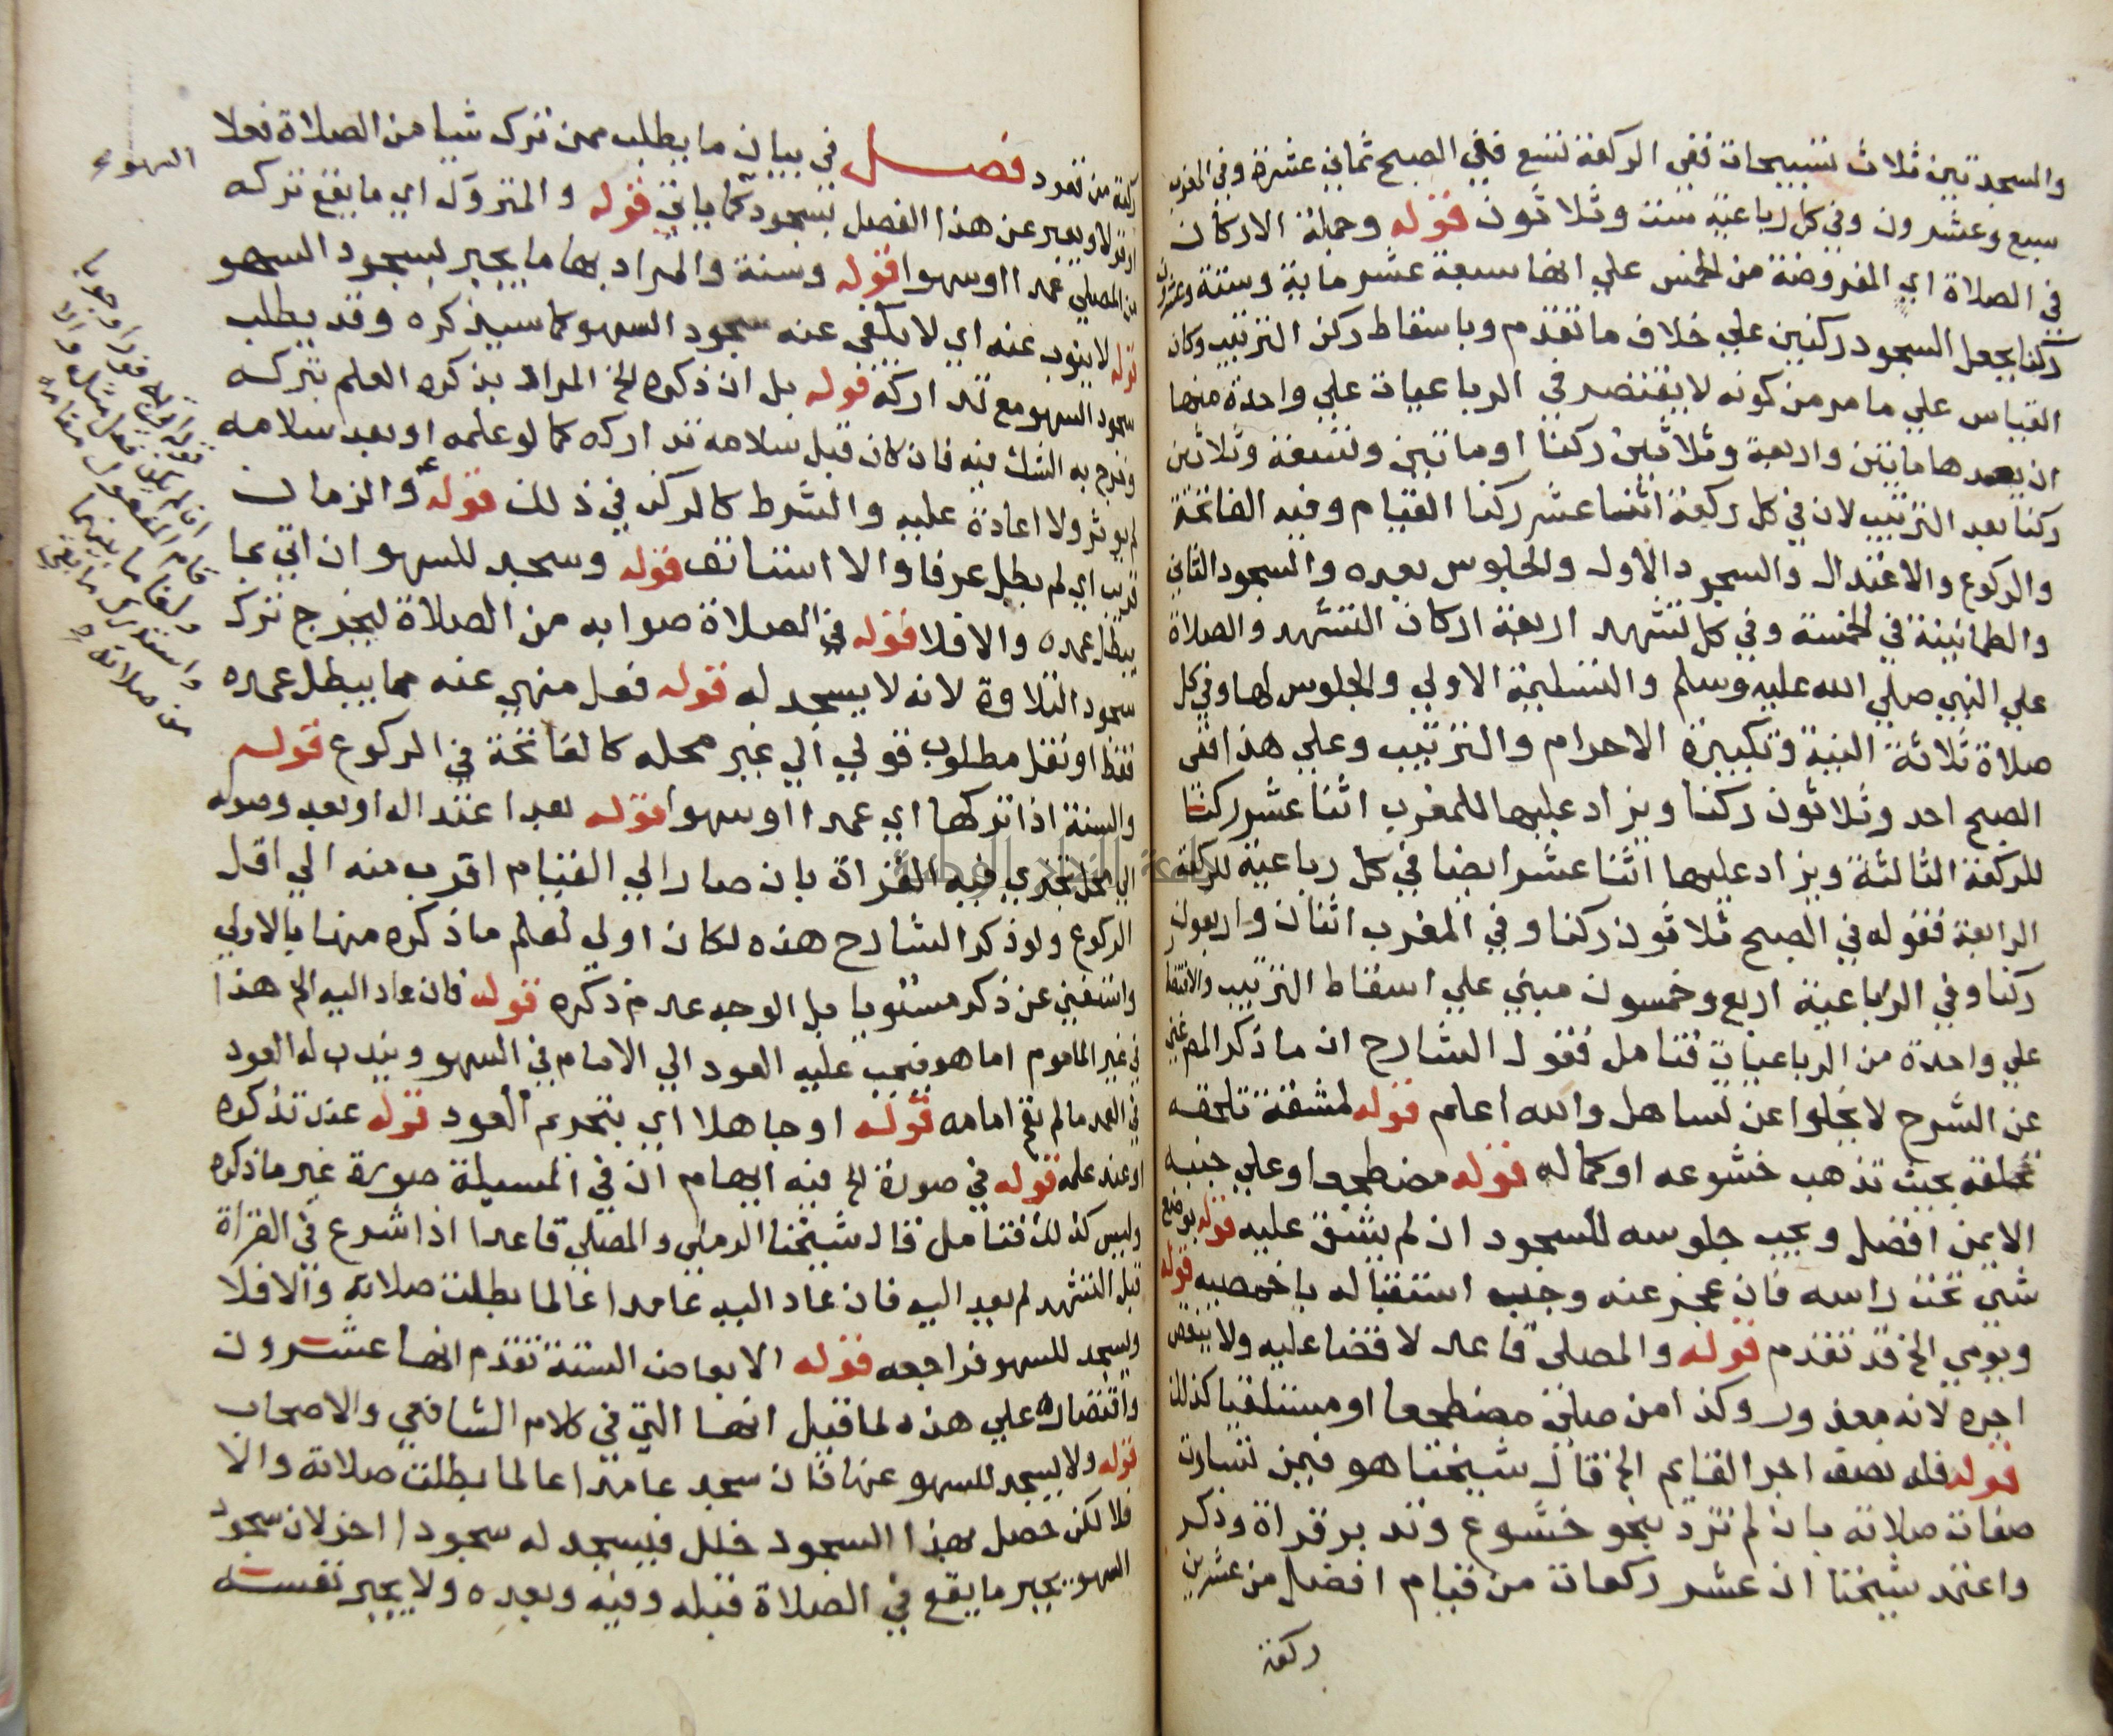 والسجدتين ثلاث تسبيحات ففي الركعة تسع ففي الصبح ثماني عشرة وفي المغرب
سبع وعشرون وفي كل رباعية ست وثلاثون قوله وجملة الاركان
في الصلاة اي المفروضة من الخمس علي انها سبعة عشر ماية وستة وعشرون
ركنا بجعل السجود ركنين علي خلاف ما تقدم وباسقاط ركن الترتيب وكان
القياس علي ما مر من كونه لا يقتصر في الرباعيات علي واحدة منها
ان يعدها مايتين واربعة وثلاثين ركنا او ماتين وتسعة وثلاثين
ركنا بعد الترتيب لان في كل ركعة اثنا عشر ركنا القيام وفيه الفاتحة
والركوع والاعتدال والسجود الاول والجلوس بعده والسجود الثاني
والطمانينة في الخمسة وفي كل تشهد اربعة اركان التشهد والصلاة
علي النبي صلي الله عليه وسلم والتسليمة الاولي والجلوس لها وفي كل
صلاة ثلاثة النية وتكبيرة الاحرام والترتيب وعلي هذا ففي
الصبح احد وثلاثون ركنا ويزاد عليها للمغرب اثنا عشر ركنا
للركعة الثالثة ويزاد عليها اثنا عشر ايضا في كل رباعية للركعة
الرابعة فقوله في الصبح ثلاثون ركنا وفي المغرب اثنان واربعون
ركنا وفي الرباعية اربع وخمسون مبني علي اسقاط الترتيب والاقتصار
علي واحدة من الرباعيات فتامل فقول الشارح ان ما ذكر المص غني
عن الشرح لا يخلوا عن تساهل والله اعلم قوله لمشقة تلحقه
بحيث تذهب خشوعه او كماله قوله مضطجعا وعلي جنبه
الايمن افضل ويجب جلوسه للسجود ان لم يشق عليه قوله بوضع
شي تحت راسه فان عجز عنه وجب استقباله باخمصيه قوله
ويومي الخ قد تقدم قوله والمصلي قاعد لا قضا عليه ولا ينقص
اجره لانه معذور وكذا من صلي مضطجعا او مستلقيا كذلك
قوله فله نصف اجر القايم الخ قال شيخنا هو فيمن تساوت
صفات صلاته بان لم تزد بنحو خشوع وتدبر قراة وذكر
واعتمد شيخنا ان عشر ركعات من قيام افضل من عشرين
ركعة
ركعة من قعود فصل في بيان ما يطلب ممن ترك شيا من الصلاة فعلا
او قولا ويعبر عن هذا الفصل بسجود كما ياتي قوله والمتروك اي ما يقع تركه
السهو
من المصلي عمدا او سهوا قوله وسنة والمراد بها ما يجبر بسجود السهو
قوله لا ينوب عنه اي لا يكفي عنه سجود السهو كما سيذكره وقد يطلب
سجود السهو مع تداركه قوله بل ان ذكره الخ المراد بذكره العلم بتركه
وخرج به الشك فيه فان كان قبل سلامه تداركه كما لو علمه او بعد سلامه
لم يوثر ولا اعادة عليه والشرط كالركن في ذلك قوله والزمان
قريب اي لم يطل عرفا والا استانف قوله وسجد للسهو ان اتي بما
يبطل عمده والا فلا قوله في الصلاة صوابه من الصلاة ليخرج ترك
سجود التلاوة لانه لا يسجد له قوله فعل منهي عنه مما يبطل عمده
فقط او نقل مطلوب قولي الي غير محله كالفاتحة في الركوع قوله
والسنة اذا تركها اي عمدا او سهوا قوله بعد اعتداله او بعد وصوله
الي محل تجري فيه القراة بان صار الي القيام اقرب منه الي اقل
الركوع ولو ذكر الشارح هذه لكان اولي لعلم ما ذكره منها بالاولي
واستغني عن ذكر مستويا بل الوجه عدم ذكره قوله فان عاد اليه الخ هذا
في غير الماموم اما هو فيجب عليه العود الي الامام في السهو ويندب له العود
في العمد ما لم يقم امامه قوله او جاهلا اي بتحريم العود قوله عند تذكره
او عند علمه قوله في صورة الخ فيه ايهام ان في المسيلة صورة غير ما ذكره
وليس كذلك فتامل قال شيخنا الرملي والمصلي قاعدا اذا شرع في القراة
قبل التشهد لم يعد اليه فان عاد اليه عامدا عالما بطلت صلاته والا فلا
ويسجد للسهو فراجعه قوله الابعاض الستة تقدم انها عشرون
واقتصاره علي هذه لما قيل انها التي في كلام الشافعي والاصحاب
قوله ولا يسجد للسهو عنها فان سجد عامدا عالما بطلت صلاته والا
فلا لكن حصل بهذا السجود خلل فيسجد له سجودا اخر لان سجود
السهو يجبر ما يقع في الصلاة قبله وفيه وبعده ولا يجبر نفسه
واستدرك ما بقي
من صلاته